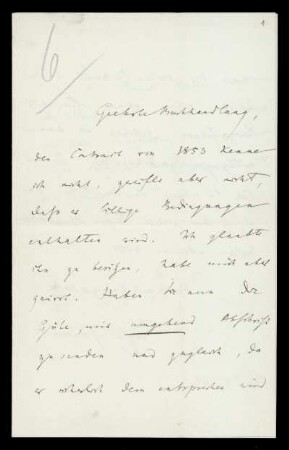 6
1
Geehrte Buchhandlung,
den Contract von 1853 kenne
ich nicht, zweifle aber nicht,
daß er billige Bedingungen
enthalten wird. Ich glaubte
ihn zu besitzen, habe mich aber
geirrt. Haben Sie nun die
Güte, mir umgehend Abschrift
zu senden und zugleich, da
er sicherlich dem entsprechen wird